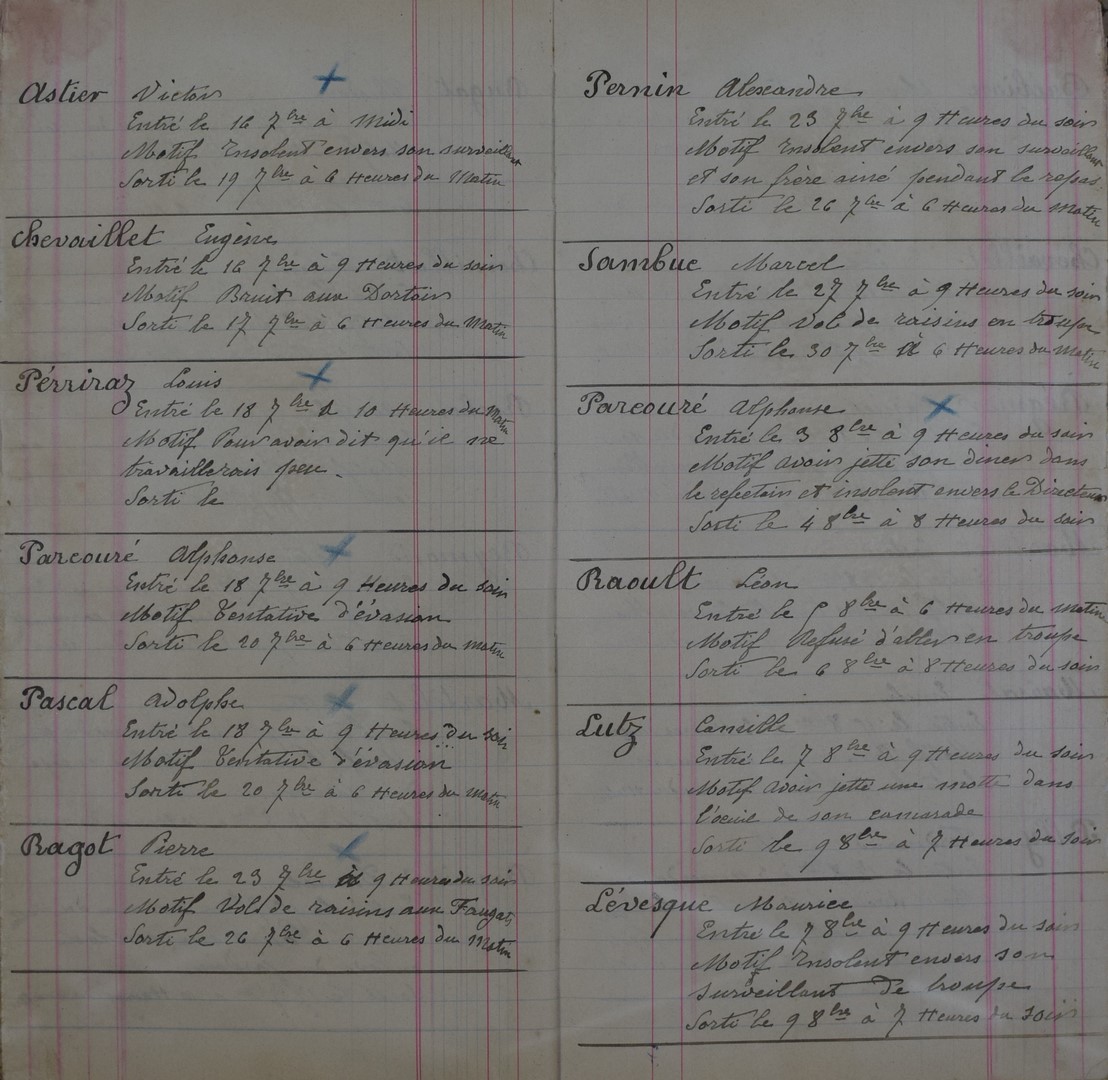 Astier Victor
Entré le 16 7bre à Midi
Motif Insolent envers son surveillant
Sorti le 19 7bre à 6 Heures du Matin
Chevaillet Eugène
Entré le 16 7bre à 9 Heures du soir
Motif Bruit aux Dortoir
Sorti le 17 7bre à 6 Heures du Matin
Pérriraz Louis
Entré le 18 7bre à 10 Heures du Matin
Motif Pour avoir dit qu'il ne
travaillerais peu
Sorti le
Parcouré Alphonse
Entré le 18 7bre à 9 Heures du soir
Motif Tentative d'évasion
Sorti le 20 7bre à 6 Heures du matin
Pascal Adolphe
Entré le 18 7bre à 9 Heures du soir
Motif Tentative d'évasion
Sorti le 20 7bre à 6 Heures du Matin
Ragot Pierre
Entré le 23 7bre à 9 Heures du soir
Motif Vols de raisins aux
Sorti le 26 7bre à 6 Heures du Matin
Pernin Alexandre
Entré le 23 7bre à 9 Heures du soir
Motif Insolent envers son surveillant
et son frère ainé pendant le repas
Sorti le 26 7bre à 6 Heures du Matin
Sambuc Marcel
Entré le 27 7bre à 9 Heures du soir
Motif Vol de raisins en troupe
Sorti le 30 7bre à 6 Heures du Matin
Parcouré Alphonse
Entré le 3 8bre à 9 Heures du soir
Motif avoir jetté son diner dans
le refectoir et insolent envers le Directeur
Sorti le 4 8bre à 8 Heures du soir
Raoult Léon
Entré le 5 8bre à 6 Heures du matin
Motif Refusé d'aller en troupe
Sorti le 6 8bre à 8 Heures du soir
Lutz Camille
Entré le 7 8bre à 9 Heures du soir
Motif Avoir jetté une motte dans
l'oeuil de son camarade
Sorti le 9 8bre à 7 Heures du soir
Lévesque Maurice
Entré le 7 8bre à 9 Heures du soir
Motif Insolent envers son
surveillant de troupe
Sorti le 9 8bre à 7 Heures du soir